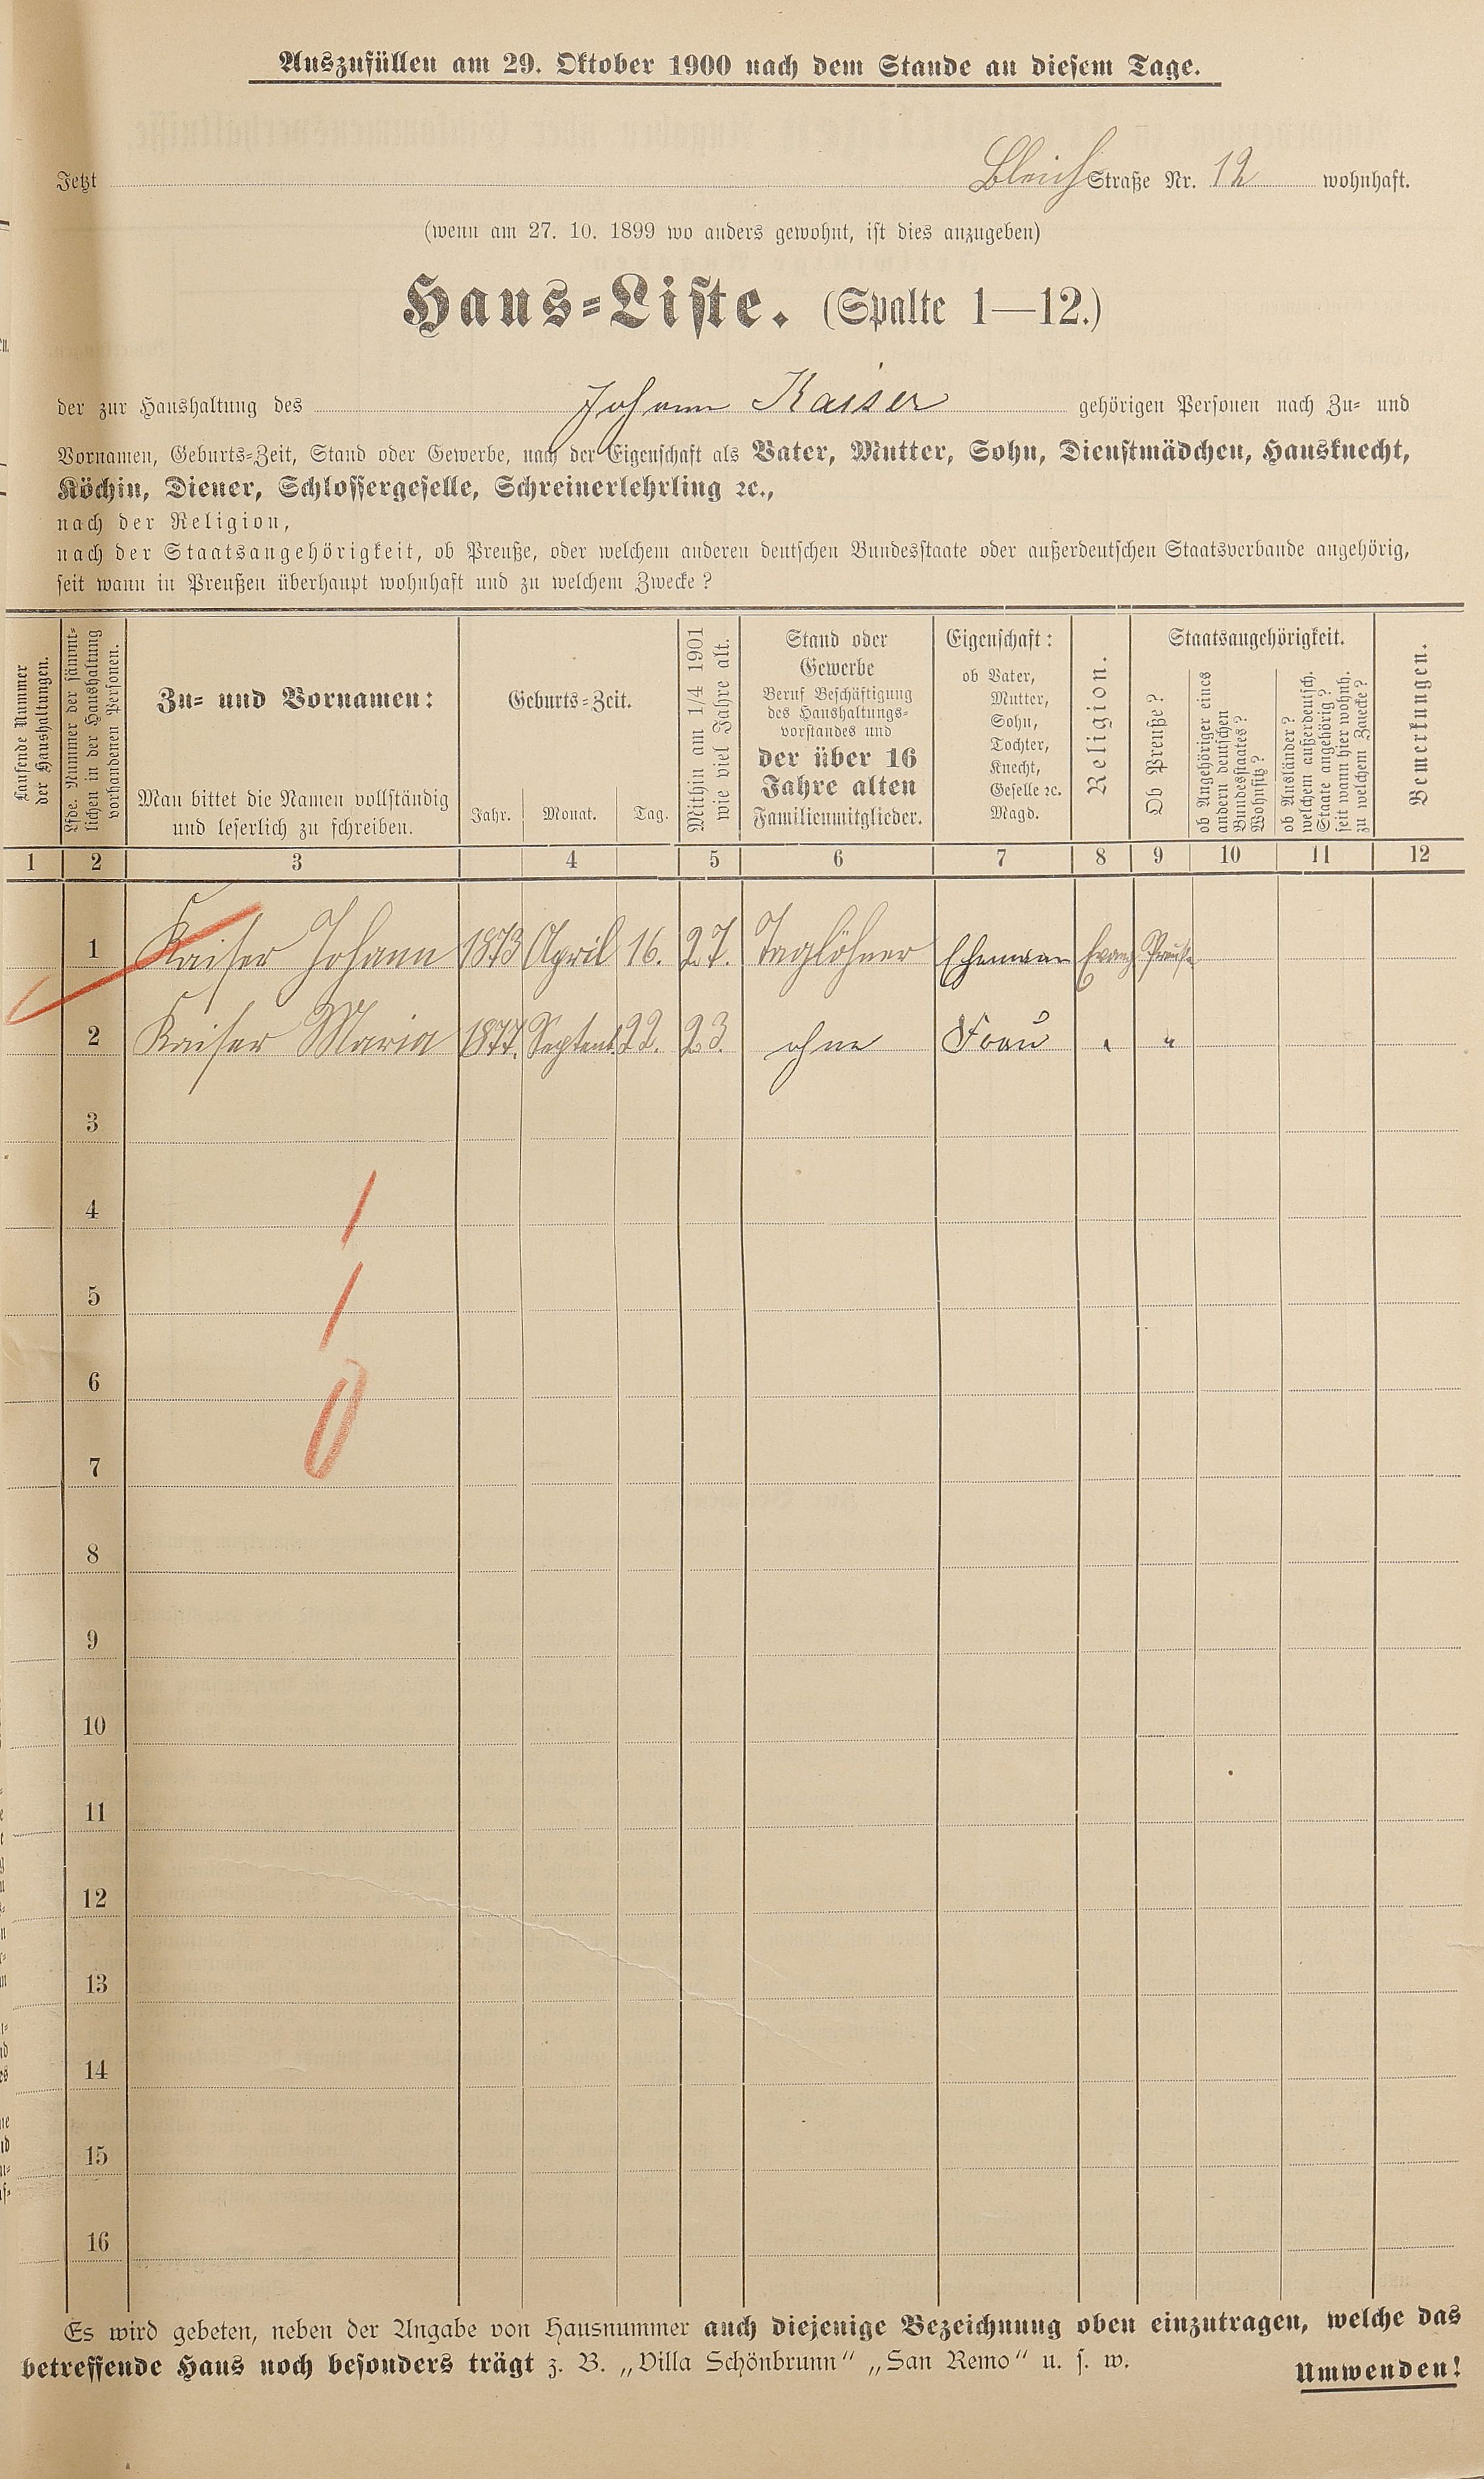 Auszufüllen am 29. Oktober 1900 nach dem Stande an diesem Tage.
Jetzt Bleich Straße Nr. 12 wohnhaft.
(wenn am 27. 10. 1899 wo anders gewohnt, ist dies anzugeben)
Haus-Liste. (Spalte 1—12.)
der zur Haushaltung des Johann Kaiser gehörigen Personen nach Zu- und
Vornamen, Geburts-Zeit, Stand oder Gewerbe, nach der Eigenschaft als Vater, Mutter, Sohn, Dienstmädchen, Hausknecht,
Köchin, Diener, Schlossergeselle, Schreinerlehrling ꝛc.,
nach der Religion,
nach der Staatsangehörigkeit, ob Preuße, oder welchem anderen deutschen Bundesstaate oder außerdeutschen Staatsverbande angehörig,
seit wann in Preußen überhaupt wohnhaft und zu welchem Zwecke?
Laufende Nummer
der Haushaltungen.
Lfde. Nummer der sämmt-
lichen in der Haushaltung
vorhandenen Personen.
Zu- und Vornamen:
Man bittet die Namen vollständig
und leserlich zu schreiben.
Geburts-Zeit.
Jahr. Monat. Tag.
Mithin am 1/4 1901
wie viel Jahre alt.
Stand oder
Gewerbe
Beruf Beschäftigung
des Haushaltungs-
vorstandes und
der über 16
Jahre alten
Familienmitglieder.
Eigenschaft:
ob Vater,
Mutter,
Sohn,
Tochter,
Knecht,
Geselle ꝛc.
Magd.
Religion.
Staatsangehörigkeit.
Ob Preuße?
ob Angehöriger eines
andern deutschen
Bundesstaates?
Wohnsitz?
ob Ausländer?
welchem außerdeutsch.
Staate angehörig?
seit wann hier wohnh.
zu welchem Zwecke?
Bemerkungen.
1 2 3 4 5 6 7 8 9 10 11 12
1 Kaiser Johann 1873 April 16. 27. Taglöhner Ehemann Evang Preuße
2 Kaiser Maria 1877. Septemb. 22. 23. ohne Frau " "
3
4
5
6
7
8
9
10
11
12
13
14
15
16
Es wird gebeten, neben der Angabe von Hausnummer auch diejenige Bezeichnung oben einzutragen, welche das
betreffende Haus noch besonders trägt z. B. „Villa Schönbrunn" „San Remo" u. s. w.
Umwenden!